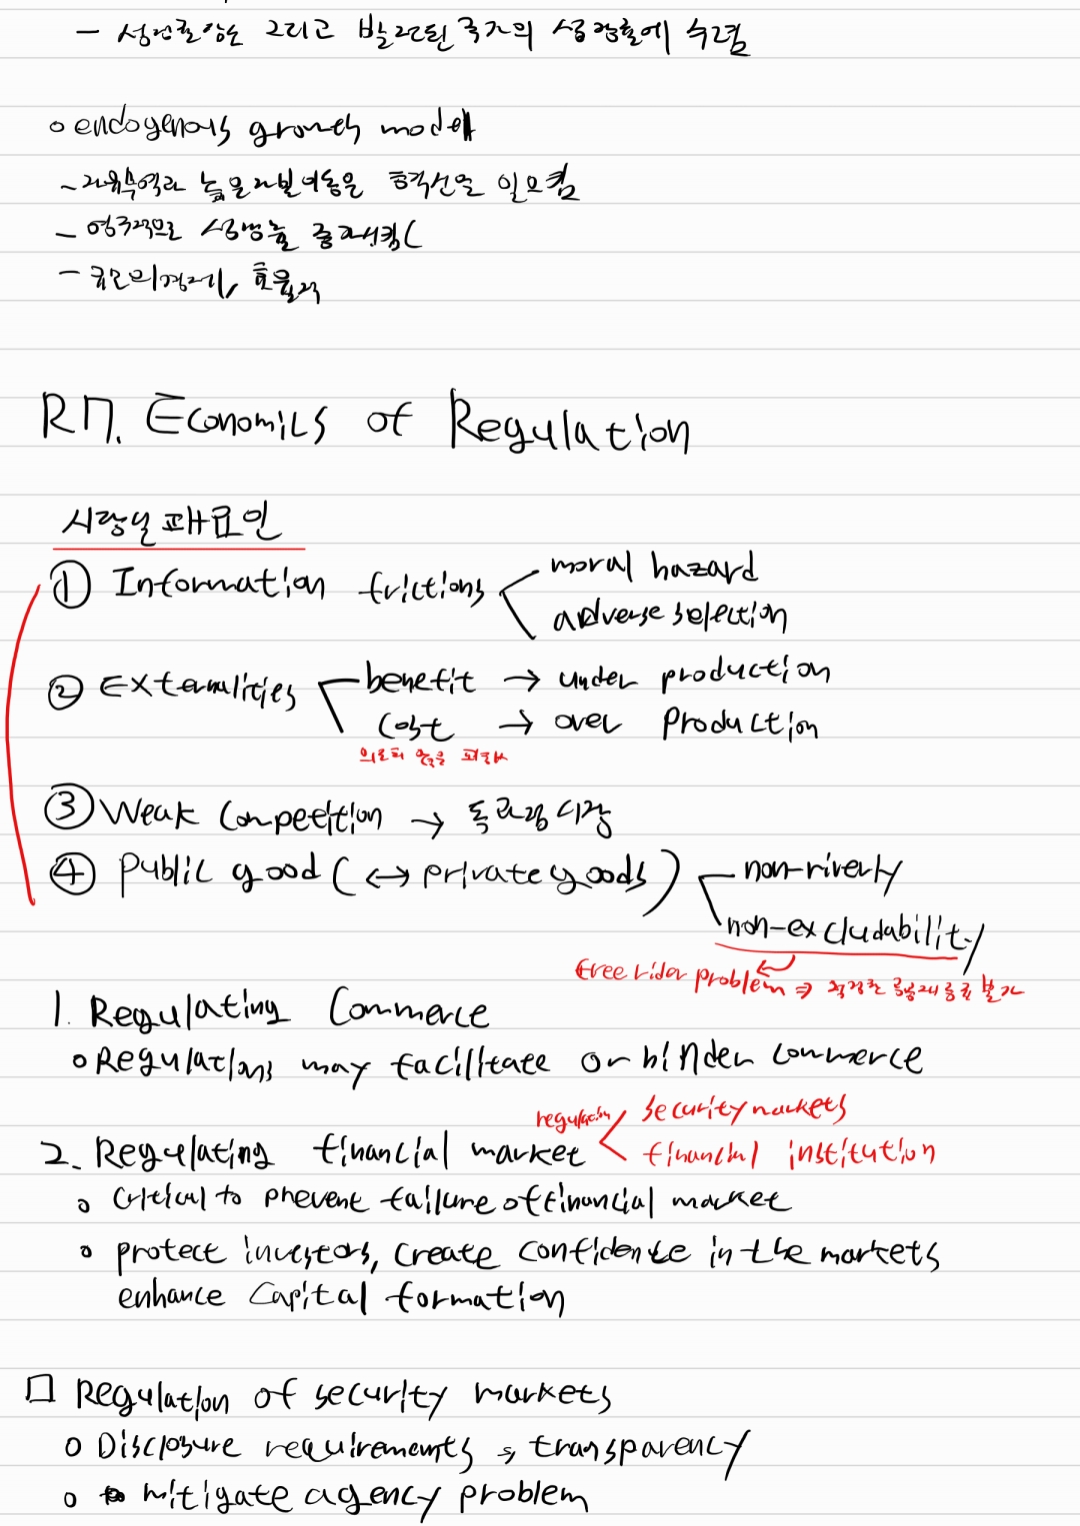 - 성장률 감소 그리고 발전된 국가의 성장률에 수렴
o endogenous growth model
- 자유무역과 높은 자본이동은 혁신을 일으킴
- 영구적으로 성장률 증가시킴
- 규모의 경제, 효율적
R17. Economics of Regulation
시장실패요인
① Information frictions moral hazard
adverse selection
② Externalities benefit → under production
cost → over production
③ Weak Conpetition → 독과점시장
④ Public good (↔ private goods) non-riverly
non-excludability
free rider problem ⇒
1. Regulating Commerce
o Regulations may facilitate or hinder commerce
regulation security markets
2. Regulating financial market financial institution
o Critical to prevent failure of financial market
o protect investors, create confidence in the markets
enhance Capital formation
□ Regulation of security markets
o Disclosure requirements → transparency
o mitigate agency problem